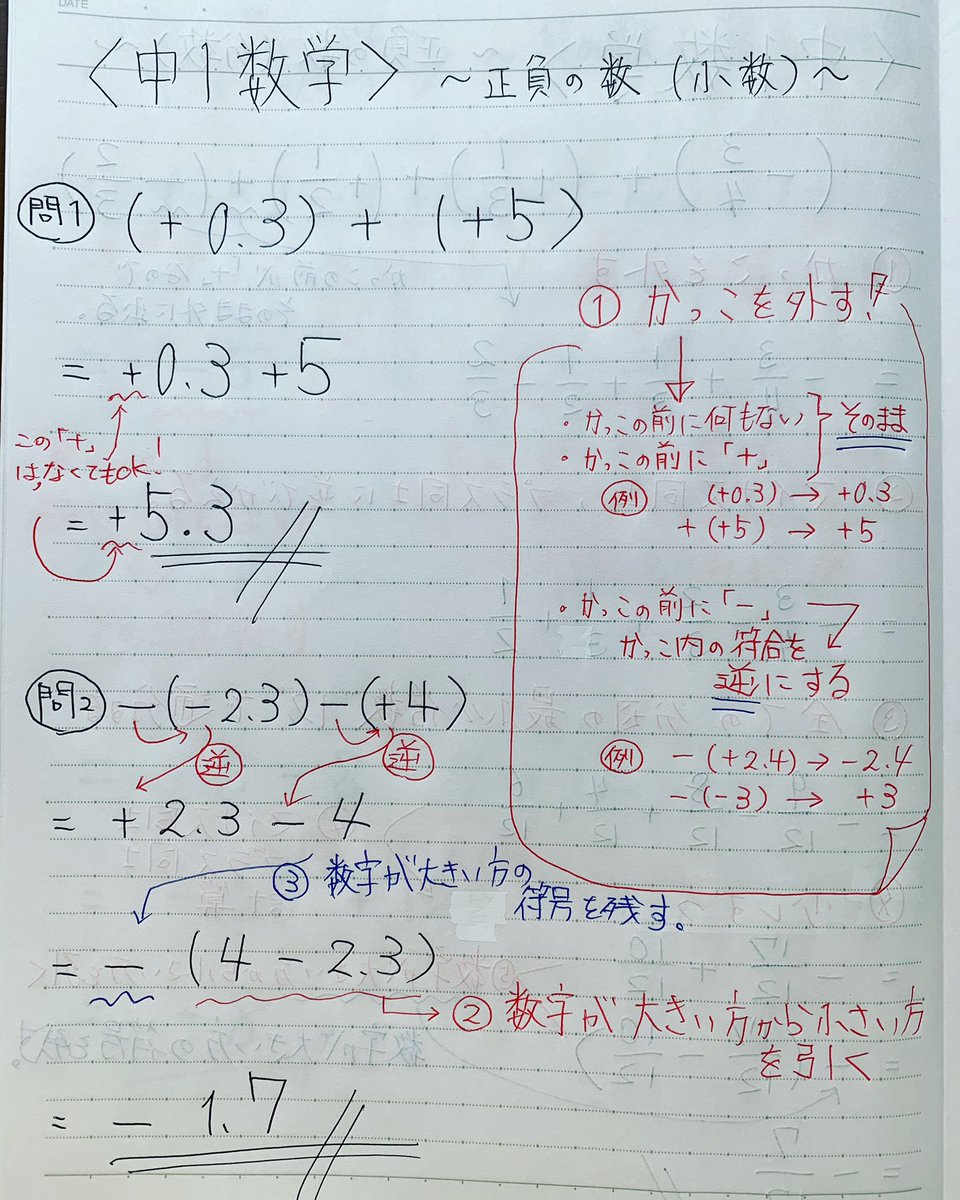 DATE
〈中1数学〉 ～正負の数 (小数)～
問1 (+0.3) + (+5)
= +0.3 +5
この「+」
は、なくてもok!
= +5.3
① かっこを外す!
・かっこの前に何もない
・かっこの前に「+」
そのまま
例 (+0.3) → +0.3
+(+5) → +5
・かっこの前に「−」
かっこ内の符合を
逆にする
例 −(+2.4) → −2.4
−(−3) → +3
問2 −(−2.3)−(+4)
逆 逆
= +2.3 − 4
③ 数字が大きい方の
符号を残す。
= − (4 − 2.3)
② 数字が大きい方から小さい方
を引く
= − 1.7